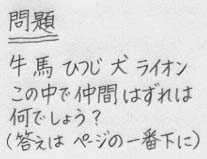 問題
牛 馬 ひつじ 犬 ライオン
この中で仲間はずれは
何でしょう？
(答えは ページの一番下に)